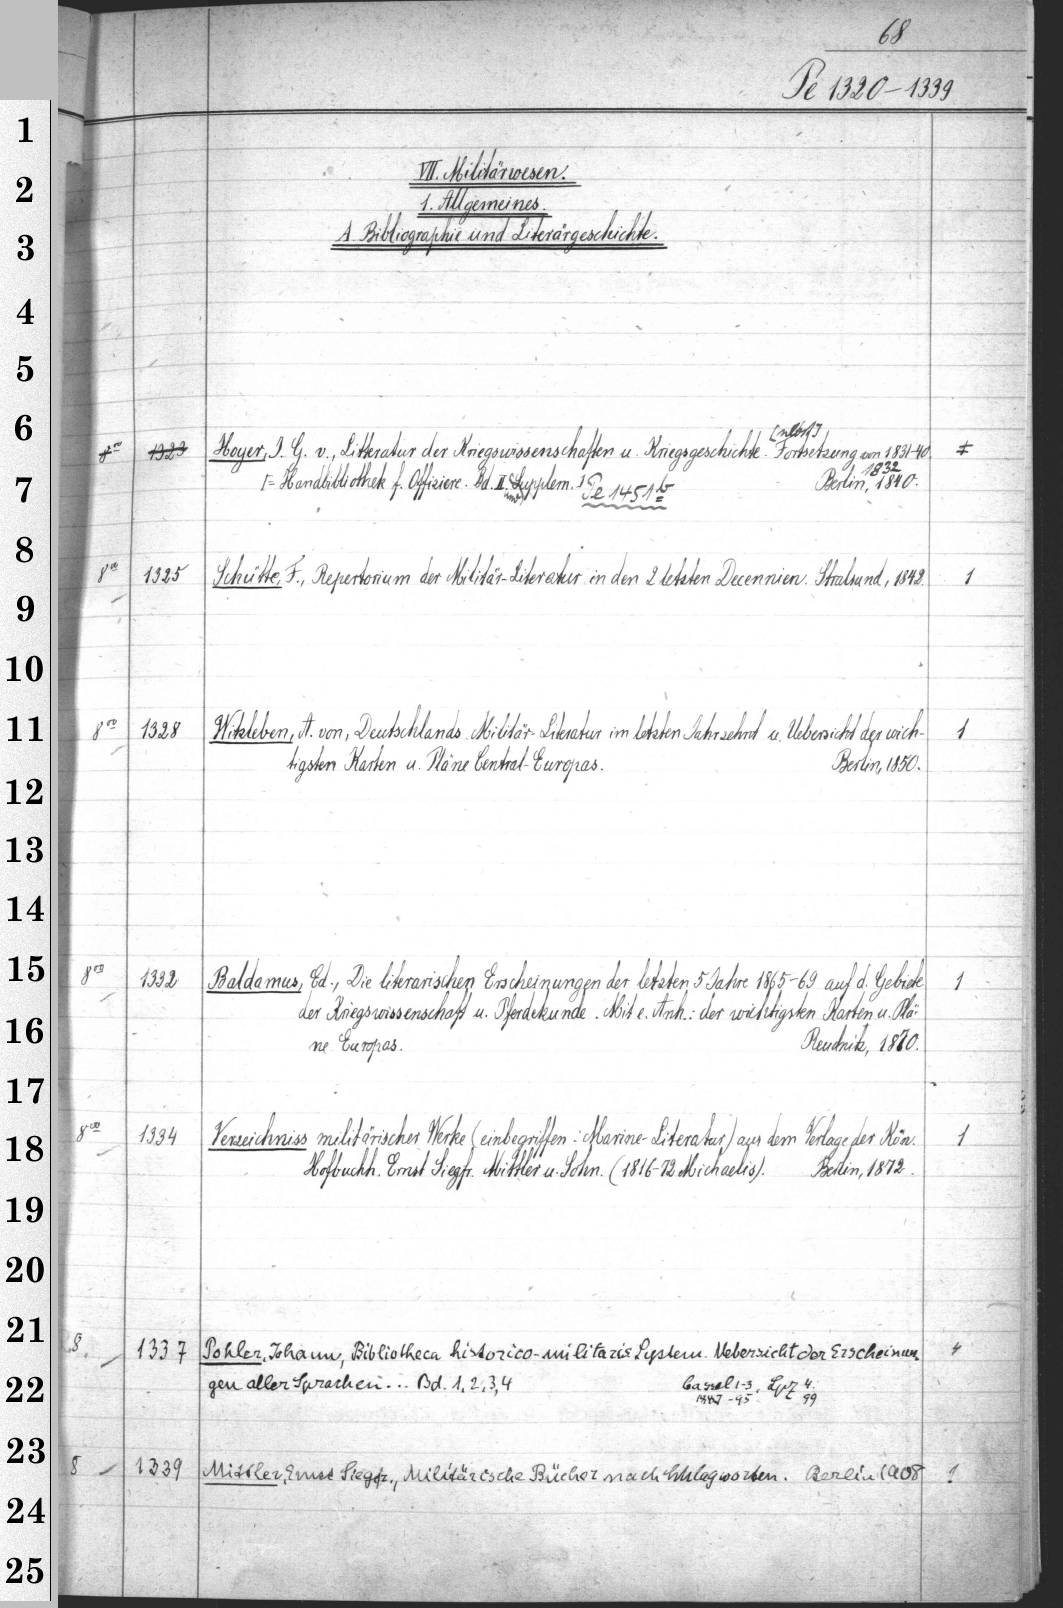 68
Pe 1320-1339
VII. Militärwesen.
1. Allgemeines.
A Bibliographie und Literärgeschichte.
8vo 1323 Hoyer, J. G. v., Litteratur der Kriegswissenschaften u. Kriegsgeschichte. Fortsetzung von 1831-40.
[= Handbibliothek f. Offiziere. Bd. II. Supplem.] Pe 1451 b Berlin, 1832 1840.
8vo 1325 Schütte, F., Repertorium der Militär-Literatur in den 2 letzten Decennien. Stralsund, 1842. 1
8vo 1328 Witzleben, A. von, Deutschlands Militär-Literatur im letzten Jahrzehnt u. Uebersicht der wich-
tigsten Karten u. Pläne Central-Europas. Berlin, 1850. 1
8vo 1332 Baldamus, Ed., Die literarischen Erscheinungen der letzten 5 Jahre 1865-69 auf d. Gebiete 1
der Kriegswissenschaft u. Pferdekunde. Mit e. Anh.: der wichtigsten Karten u. Plä-
ne Europas. Reudnitz, 1870.
8vo 1334 Verzeichniss militärischer Werke (einbegriffen: Marine-Literatur) aus dem Verlage der Kön. 1
Hofbuchh. Ernst Siegfr. Mittler u. Sohn. (1816-72 Michaelis). Berlin, 1872.
8. 1337 Pohler, Johann, Bibliotheca historico-militaris System. Uebersicht der Erscheinun- 4
gen aller Sprachen... Bd. 1,2,3,4 Cassel 1-3, Lpz 4.
1887-95 99
8 1339 Mittler, Ernst Siegfr., Militärische Bücher nach Schlagworten. Berlin 1908 1
1
2
3
4
5
6
7
8
9
10
11
12
13
14
15
16
17
18
19
20
21
22
23
24
25